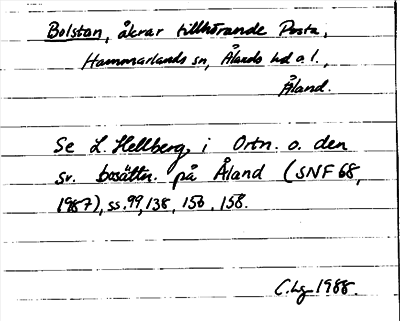 Bolstan, åkrar tillhörande Posta,
Hammarlands sn, Ålands hd o. l.,
Åland.
Se L. Hellberg, i Ortn. o. den
sv. bosättn. på Åland (SNF 68,
1987), ss. 99, 138, 156, 158.
C. Lg 1988.